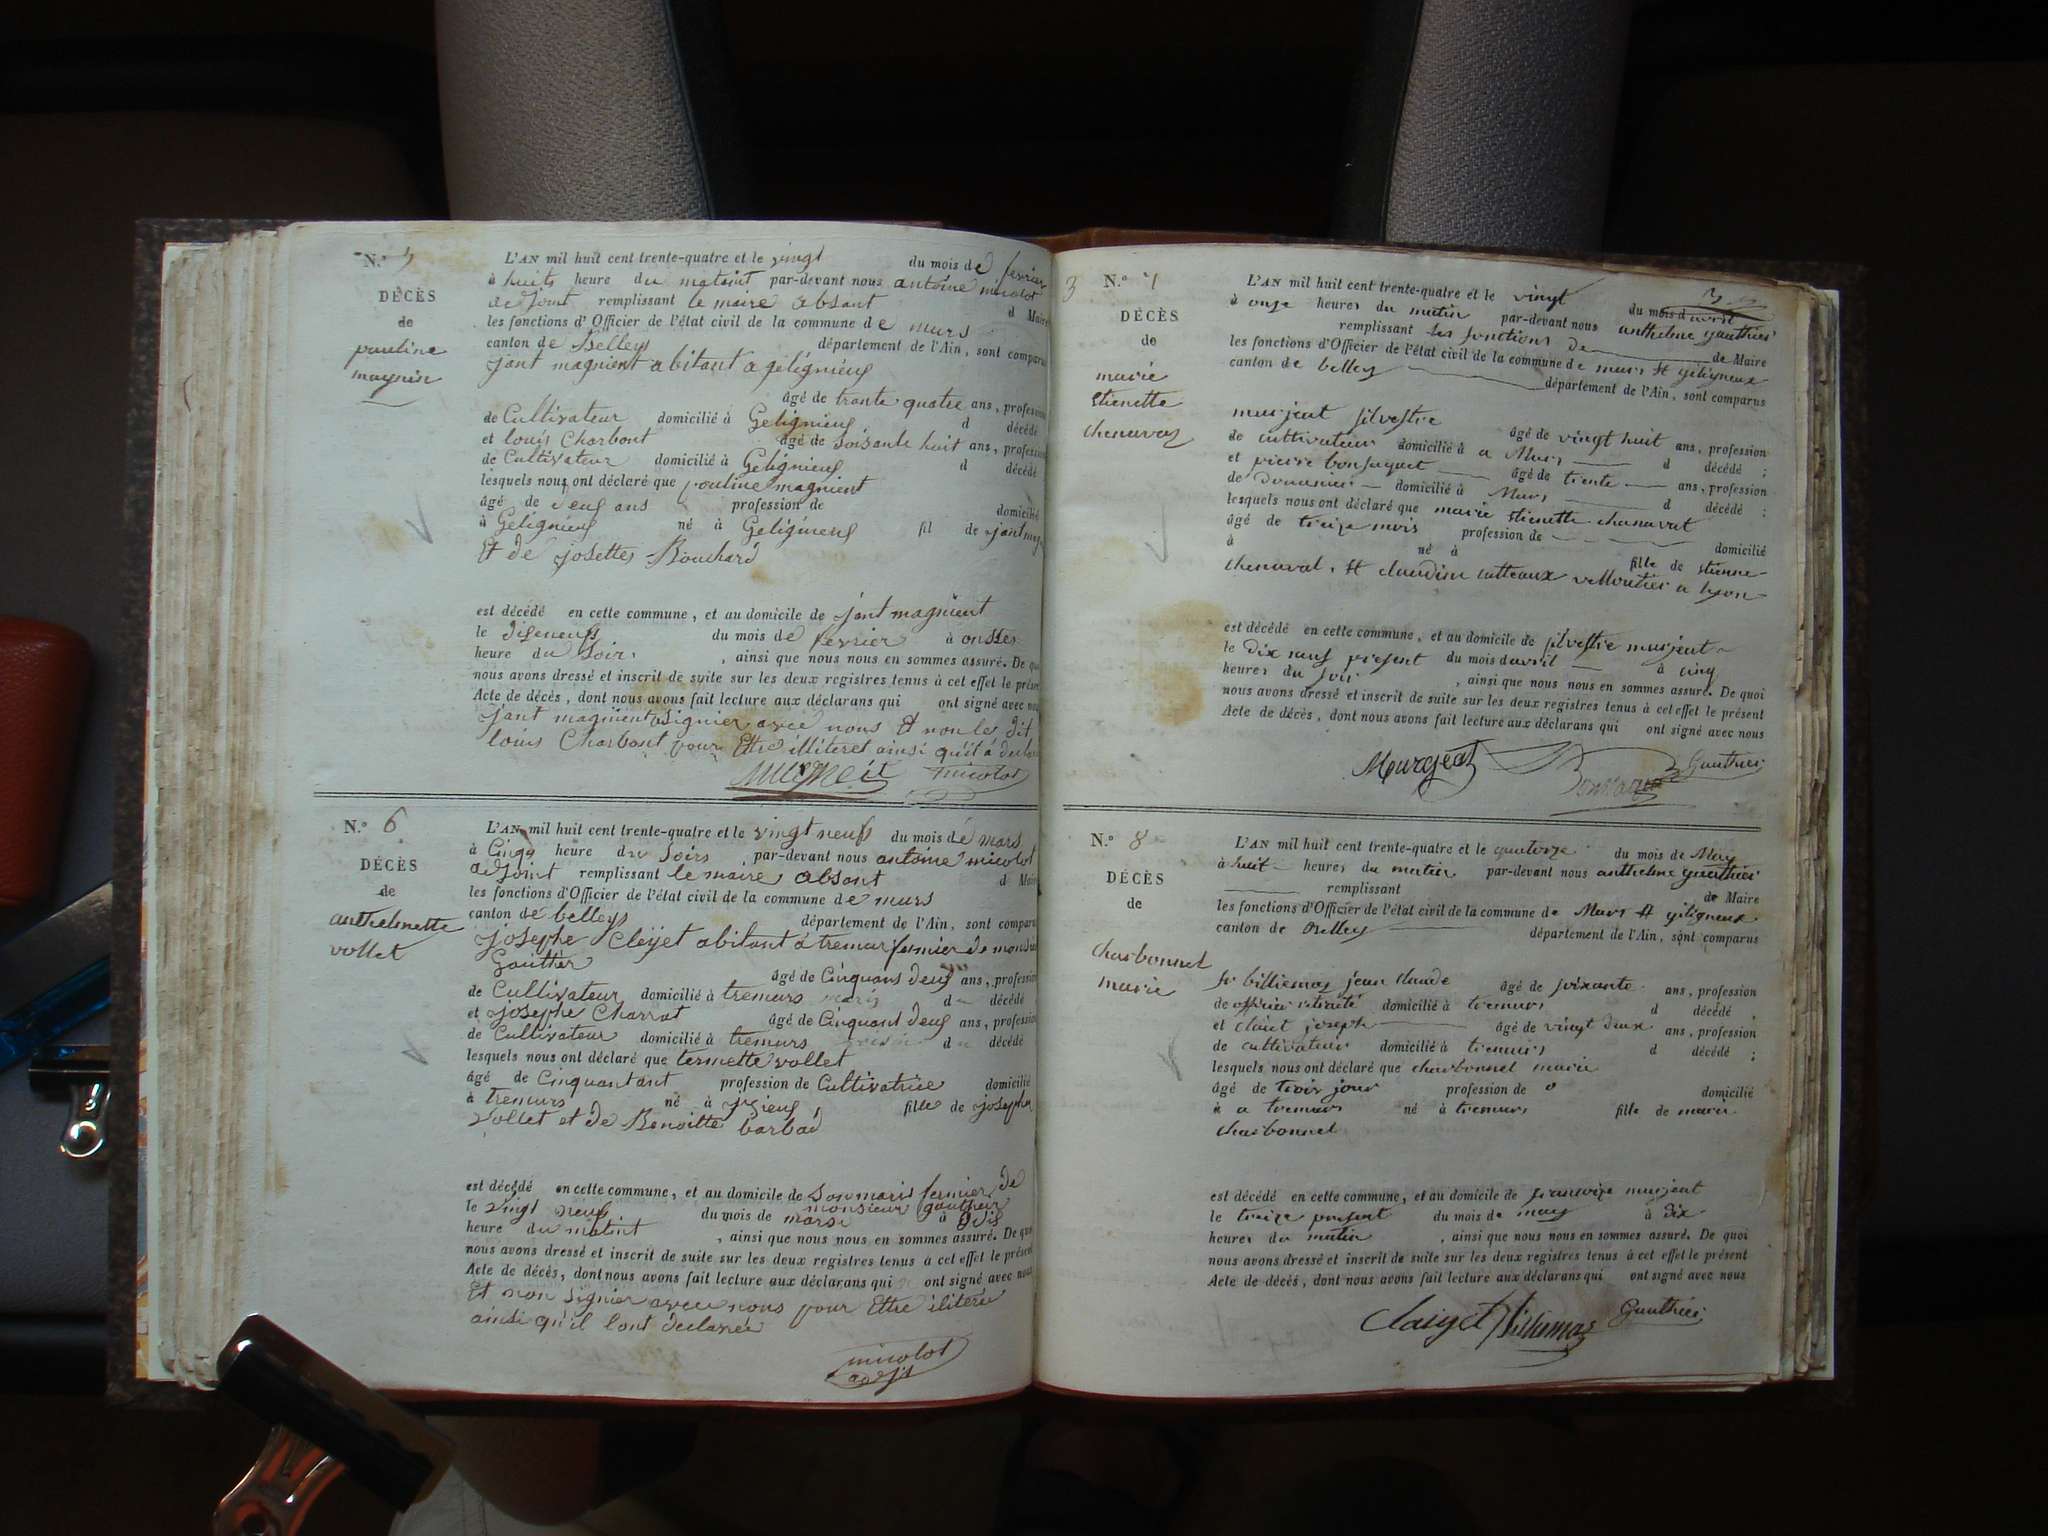 N.° 5
DÉCÈS
de
pauline
magnin
L'AN mil huit cent trente-quatre et le vingt du mois de fevrier
à huits heure du matint par-devant nous antoine micolot
adjoint remplissant le maire absant d Maire
les fonctions d'Officier de l'état civil de la commune de murs
canton de Belley département de l'Ain, sont comparus
jant magnient abitant a gelignieus
âgé de trante quatre ans, profession
de Cultivateur domicilié à Gelignieus d décédé
et louis Charbont âgé de soisante huit ans, profession
de Cultivateur domicilié à Gelignieus d décédé
lesquels nous ont déclaré que pouline magnient
âgé de deus ans profession de domicilié
à Gelignieus né à Gelignieus fil de jant
Et de josettes Bouchard
est décédé en cette commune, et au domicile de jant magnient
le diseneufs du mois de fevrier à onsses
heure du soirs, ainsi que nous nous en sommes assuré. De quoi
nous avons dressé et inscrit de suite sur les deux registres tenus à cet effet le présent
Acte de décès, dont nous avons fait lecture aux déclarans qui ont signé avec nous
jant magnient signier avec nous Et non les dit
louis Charbont pour Ettre illiteret ainsi qu'il a
micolot
N.° 6
DÉCÈS
de
anthelmette
vollet
L'AN mil huit cent trente-quatre et le vingt neufs du mois de mars
à Cinqs heure du soirs, par-devant nous antoine micolot
adjoint remplissant le maire absant d Maire
les fonctions d'Officier de l'état civil de la commune de murs
canton de belleys département de l'Ain, sont comparus
josephe Cleyet abitant a tremur fermier de
Gautier
âgé de Cinquans deus ans, profession
de Cultivateur domicilié à tremurs maris d décédé
et josephe Charrat âgé de Cinquant deus ans, profession
de Cultivateur domicilié à tremurs d décédé
lesquels nous ont déclaré que termette vollet
âgé de Cinquantant profession de Cultivatrice domicilié
à tremurs né à jzieus fille de josephe
vollet et de Benoitte barbad
est décédé en cette commune, et au domicile de son maris fermier de
monsieur gautheir
le vingt neufs du mois de marse à dis
heure du matint, ainsi que nous nous en sommes assuré. De quoi
nous avons dressé et inscrit de suite sur les deux registres tenus à cet effet le présent
Acte de décès, dont nous avons fait lecture aux déclarans qui ont signé avec nous
Et non signier avec nous pour Ettre iliteré
ainsi qu'il lont declaree
micolot
adjt
3
N.° 7
DÉCÈS
de
marie
Etienette
chenaval
L'AN mil huit cent trente-quatre et le vingt du mois d'avril
à onze heures du matin par-devant nous anthelme gauthier
remplissant les fonctions de de Maire
les fonctions d'Officier de l'état civil de la commune de murs et géligneux
canton de belley département de l'Ain, sont comparus
murjeat silvestre
âgé de vingt huit ans, profession
de cultivateur domicilié à a Murs d décédé ;
et pierre bonjaquet âgé de trente ans, profession
de domicilié à Murs d décédé ;
lesquels nous ont déclaré que marie etienette chanavat
âgé de treize mois profession de domicilié
à né à fille de etienne
chenaval, et claudine a lyon
est décédé en cette commune, et au domicile de silvestre murjeat
le dix neuf present du mois d'avril à cinq
heures du soir, ainsi que nous nous en sommes assuré. De quoi
nous avons dressé et inscrit de suite sur les deux registres tenus à cet effet le présent
Acte de décès, dont nous avons fait lecture aux déclarans qui ont signé avec nous
Murgeat Gauthier
N.° 8
DÉCÈS
de
charbonnel
marie
L'AN mil huit cent trente-quatre et le quatorze du mois de May
à huit heures du matin par-devant nous anthelme gauthier
remplissant de Maire
les fonctions d'Officier de l'état civil de la commune de Murs et géligneux
canton de Belley département de l'Ain, sont comparus
sr billiemaz jean claude âgé de soixante ans, profession
de officier retraité domicilié à tremurs d décédé
et claiet joseph âgé de vingt deux ans, profession
de cultivateur domicilié à tremurs d décédé ;
lesquels nous ont déclaré que charbonnel marie
âgé de trois jour profession de 0 domicilié
à a tremurs né à tremurs fille de marie
charbonnel
est décédé en cette commune, et au domicile de francoise murjeat
le treize present du mois de may à dix
heures du matin, ainsi que nous nous en sommes assuré. De quoi
nous avons dressé et inscrit de suite sur les deux registres tenus à cet effet le présent
Acte de décès, dont nous avons fait lecture aux déclarans qui ont signé avec nous
Claiyet Billiemaz Gauthier